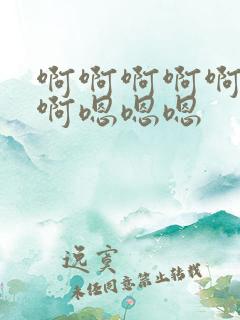 啊啊啊啊啊
啊嗯嗯嗯
逸寞
未经同意禁止转载